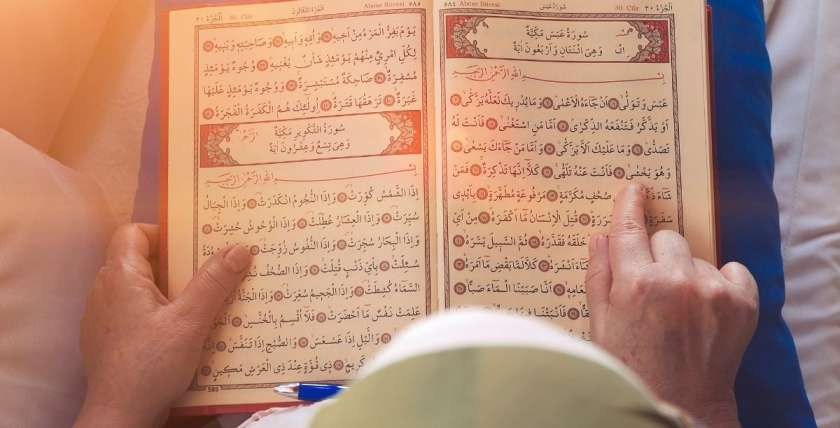 ٥٨٤ Abese Sûresi سُورَةُ عَبَسَ 30. Cüz الْجُزْءُ ٣٠
سُورَةُ عَبَسَ مَكِّيَّةٌ
وَهِيَ اثْنَتَانِ وَاَرْبَعُونَ اٰيَةً
بِسْمِ اللهِ الرَّحْمٰنِ الرَّحِيمِ
عَبَسَ وَتَوَلّٰىۙ اَنْ جَٓاءَهُ الْاَعْمٰىۜ وَمَا يُدْرِيكَ لَعَلَّهُ يَزَّكّٰىۙ
اَوْ يَذَّكَّرُ فَتَنْفَعَهُ الذِّكْرٰىۜ اَمَّا مَنِ اسْتَغْنٰىۙ فَاَنْتَ لَهُ
تَصَدّٰىۜ وَمَا عَلَيْكَ اَلَّا يَزَّكّٰىۜ وَاَمَّا مَنْ جَٓاءَكَ يَسْعٰىۙ
وَهُوَ يَخْشٰىۙ فَاَنْتَ عَنْهُ تَلَهّٰىۚ كَلَّٓا اِنَّهَا تَذْكِرَةٌۚ فَمَنْ
شَٓاءَ صُحُفٍ مُكَرَّمَةٍۙ مَرْفُوعَةٍ مُطَهَّرَةٍۙ بِاَيْدِي
سَفَرَةٍۙ قُتِلَ الْاِنْسَانُ مَٓا اَكْفَرَهُۜ مِنْ اَيِّ
خَلَقَهُ فَقَدَّرَهُۙ ثُمَّ السَّبِيلَ يَسَّرَهُۙ
كَلَّا لَمَّا يَقْضِ مَٓا اَمَرَهُۜ
اَنَّا صَبَبْنَا الْمَٓاءَ صَبًّاۙ
فَاَنْبَتْنَا
Abese Sûresi 30. Cüz الْجُزْءُ ٣٠
يَوْمَ يَفِرُّ الْمَرْءُ مِنْ اَخِيهِۙ وَاُمِّهِ وَاَبِيهِۙ وَصَاحِبَتِهِ وَبَنِيهِۜ
لِكُلِّ امْرِئٍ مِنْهُمْ يَوْمَئِذٍ شَأْنٌ يُغْنِيهِۜ وُجُوهٌ يَوْمَئِذٍ
مُسْفِرَةٌۙ ضَاحِكَةٌ مُسْتَبْشِرَةٌۚ وَوُجُوهٌ يَوْمَئِذٍ عَلَيْهَا
غَبَرَةٌۙ تَرْهَقُهَا قَتَرَةٌۜ اُو۬لٰٓئِكَ هُمُ الْكَفَرَةُ الْفَجَرَةُ
سُورَةُ التَّكْوِيرِ مَكِّيَّةٌ
وَهِيَ تِسْعٌ وَعِشْرُونَ اٰيَةً
بِسْمِ اللهِ الرَّحْمٰنِ الرَّحِيمِ
اِذَا الشَّمْسُ كُوِّرَتْۙ وَاِذَا النُّجُومُ انْكَدَرَتْۙ وَاِذَا الْجِبَالُ
سُيِّرَتْۙ وَاِذَا الْعِشَارُ عُطِّلَتْۙ وَاِذَا الْوُحُوشُ حُشِرَتْۙ
وَاِذَا الْبِحَارُ سُجِّرَتْۙ وَاِذَا النُّفُوسُ زُوِّجَتْۙ
سُئِلَتْۙ بِاَيِّ ذَنْبٍ قُتِلَتْۚ وَاِذَا الصُّحُفُ
السَّمَٓاءُ كُشِطَتْۙ وَاِذَا الْجَحِيمُ سُعِّرَتْۙ وَاِذَا الْجَنَّةُ
عَلِمَتْ نَفْسٌ مَٓا اَحْضَرَتْۜ فَلَٓا اُقْسِمُ بِالْخُنَّسِۙ
وَالَّيْلِ اِذَا عَسْعَسَۙ وَالصُّبْحِ اِذَا تَنَفَّسَۙ
كَرِيمٍۙ ذِي قُوَّةٍ عِنْدَ ذِي الْعَرْشِ مَكِينٍۙ
585